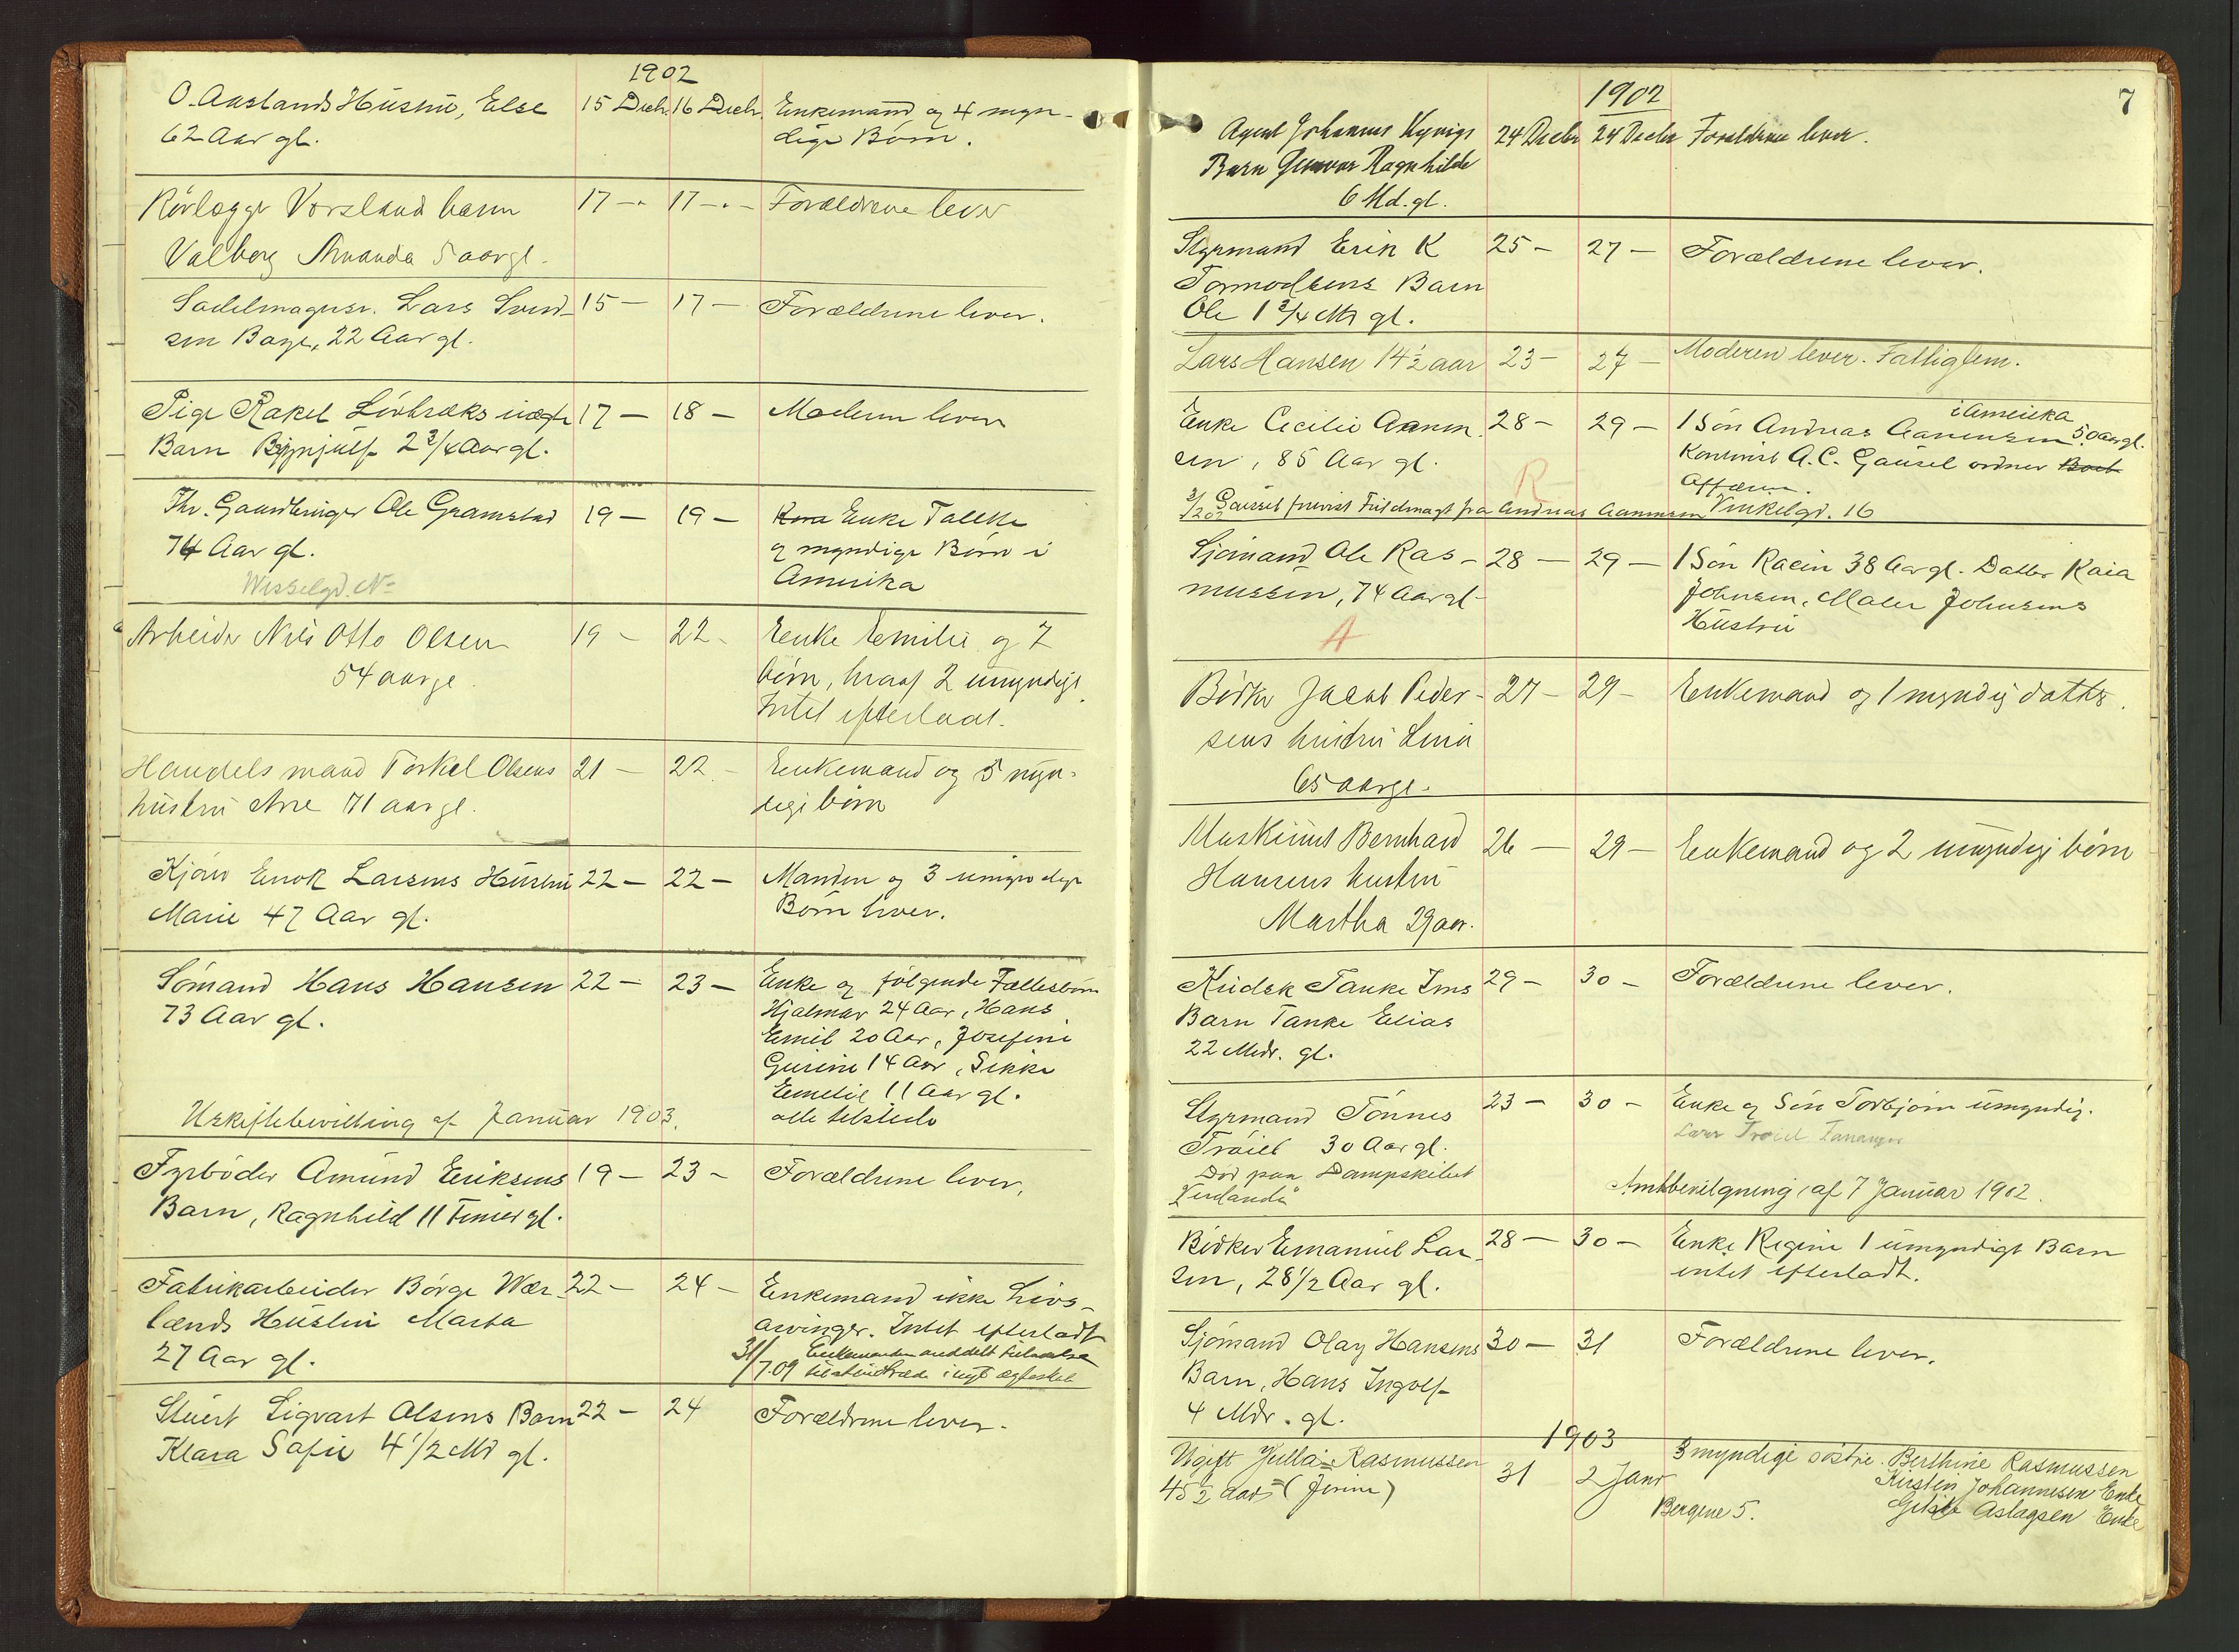 1902
O. Auslands Hustru, Else 15 Decb. 16 Decb. Enkemand og 4 myn-
62 Aar gl. dige Børn.
Rørlægger Vorsland barn 17 — 17 — Forældrene lever
Valborg Amanda 5 aar gl.
Sadelmagersv. Lars Svend- 15 — 17 — Forældrene lever.
sen Bage, 22 Aar gl.
Pige Rakel Lövbræks uægte 17 — 18 — Moderen lever
Barn Brynjulf 2 3/4 Aar gl.
Fhv. Gaardbruger Ole Gramstad 19 — 19 — Enke Tallette
74 Aar gl. og myndige Børn i
Wesselgd. No Amerika
Arbeider Nils Otto Olsen 19 — 22 — Enke Emilie og 7
54 aar gl. børn, hvoraf 2 umyndige
Intet efterladt.
Handelsmand Torkel Olsens 21 — 22 — Enkemand og 5 myn-
hustru Ane 71 aar gl. dige børn
Enok Larsens Hustru 22 — 22 — Manden og 3 umyndige
Marie 47 Aar gl. Børn lever.
Sömand Hans Hansen 22 — 23 — Enke og følgende Fællesbørn
73 Aar gl. Hjalmar 24 Aar, Hans
Emil 20 Aar, Josefine
Gurine 14 Aar, Sikke
Emelie 11 Aar gl.
Uskiftebevilling af Januar 1903. alle tilstede
Fyrbøder Amund Eriksens 19 — 23 — Forældrene lever.
Barn, Ragnhild 11 Timer gl.
Fabrikarbeider Börge Wær- 22 — 24 — Enkemand ikke Livs-
lands Hustru Marta arvinger. Intet efterladt
27 Aar gl. 31/7.09 Enkemanden meddelt tilladelse
til at indtræde i nyt ægteskab
Stuert Sigvart Olsens Barn 22 — 24 Forældrene lever.
Klara Sofie 4 1/2 Md gl.
7
1902
Agent Johannes Kyvigs 24 Decbr 24 Decbr Forældrene lever.
Barn Gunvor Ragnhilde
6 Md. gl.
Styrmand Erik K 25 — 27 — Forældrene lever.
Tormodsens Barn
Ole 1 3/4 Mr gl.
Lars Hansen 14 1/2 aar 23 — 27 — Moderen lever. Fattiglem.
Enke Cecilie Aanen- 28 — 29 — 1 Søn Andreas Aanensen i Amerika 50 aar gl.
sen, 85 Aar gl. Kontorist A. C. Gausel ordner Boet
R Affæren.
Gausel forevist Fuldmagt fra Andreas Aanensen Vinkelgd. 16
Sjömand Ole Ras- 28 — 29 — 1 Søn Racin 38 Aar gl. Datter Kaia
mussen, 74 Aar gl. Johnsen, Maler Johnsens
A Hustru
Bödker Jacob Peder- 27 — 29 — Enkemand og 1 myndig datter.
sens hustru Lina
65 aar gl.
Maskinist Bernhard 26 — 29 — Enkemand og 2 umyndige börn
Hansens hustru
Martha 29 aar.
Kudsk Tanke Ims 29 — 30 — Forældrene lever.
Barn Tanke Elias
22 Mdr. gl.
Styrmand Tönnes 23 — 30 — Enke og Sön Torbjörn umyndig.
Tröiel 30 Aar gl. Lars Troiel Tananger
Död paa Dampskibet Amtbevilgning af 7 Januar 1902.
Bödker Emanuel Lar- 28 — 30 — Enke Regine 1 umyndigt Barn
sen, 28 1/2 Aar gl. intet efterladt.
Sjömand Olay Hansens 30 — 31 Forældrene lever.
Barn, Hans Ingolf
4 Mdr. gl.
1903
Ugift Julla Rasmussen 31 2 Janr 3 myndige søstre. Berthine Rasmussen
45 1/2 aar (Jorine) Kirsten Johannesen Enke
Bergene 5. Aslagsen Enke